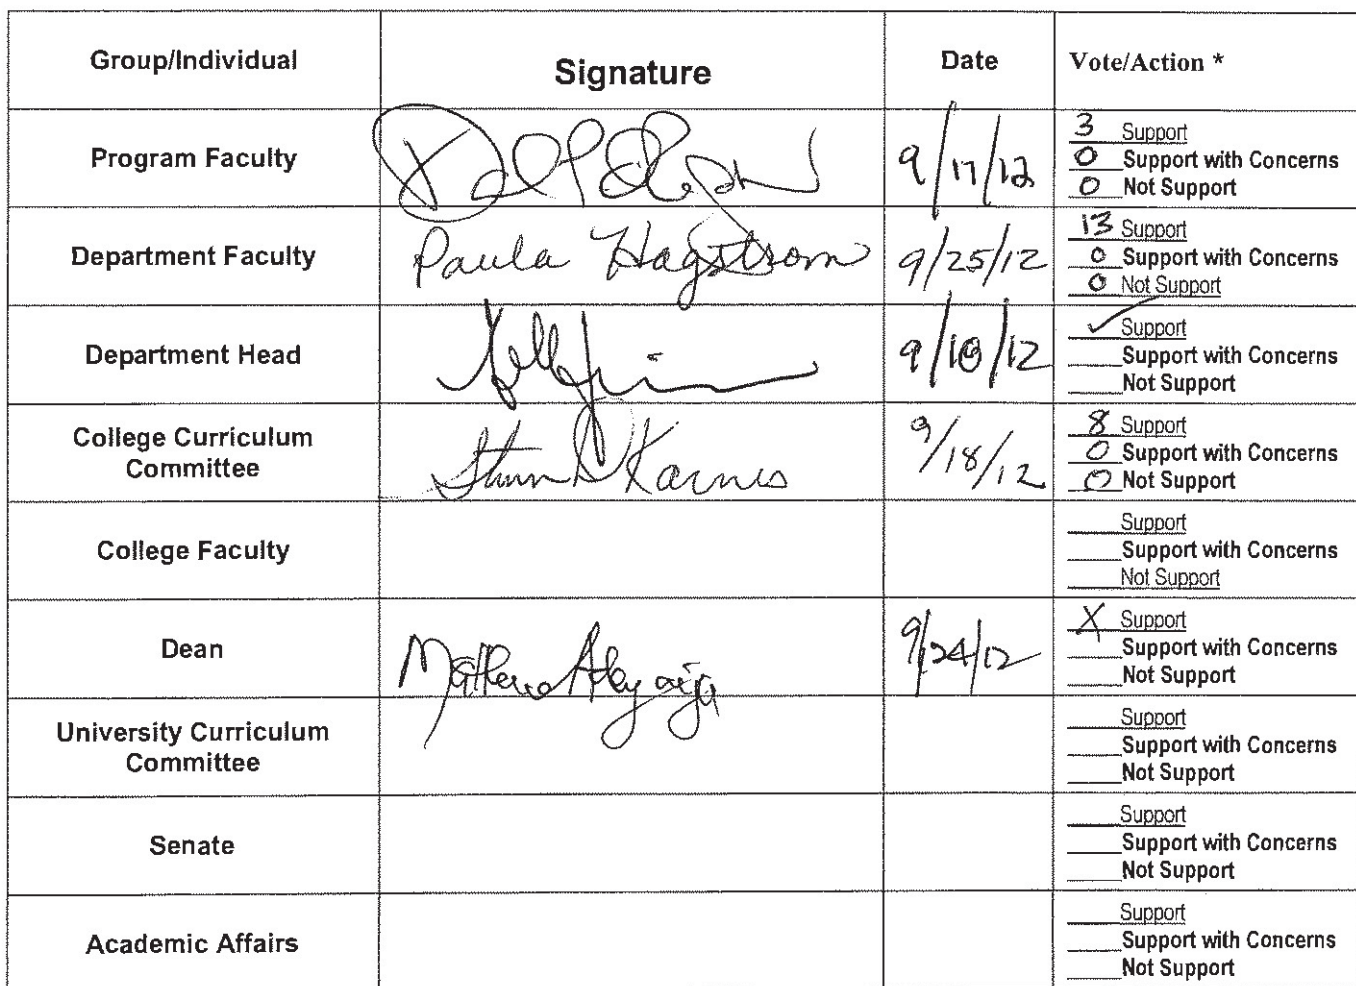 Group/Individual Signature Date Vote/Action *
Program Faculty 9/17/12 3 Support
0 Support with Concerns
0 Not Support
Department Faculty Paula Hagstrom 9/25/12 13 Support
0 Support with Concerns
0 Not Support
Department Head 9/10/12 ✓ Support
Support with Concerns
Not Support
College Curriculum
Committee Karnes 9/18/12 8 Support
0 Support with Concerns
0 Not Support
College Faculty Support
Support with Concerns
Not Support
Dean 9/24/12 X Support
Support with Concerns
Not Support
University Curriculum
Committee Support
Support with Concerns
Not Support
Senate Support
Support with Concerns
Not Support
Academic Affairs Support
Support with Concerns
Not Support